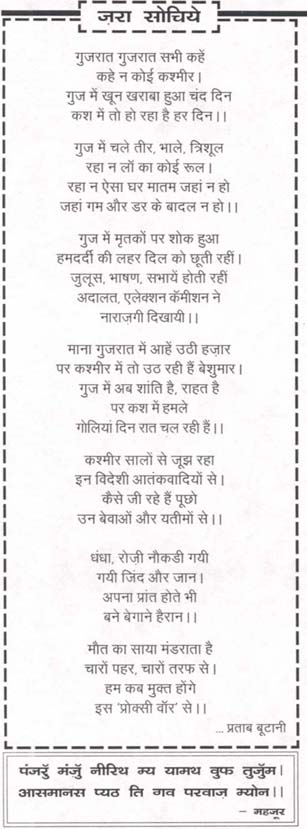 ज़रा सोचिये
गुजरात गुजरात सभी कहें
कहे न कोई कश्मीर।
गुज में खून खराबा हुआ चंद दिन
कश में तो हो रहा है हर दिन।।
गुज में चले तीर, भाले, त्रिशूल
रहा न लॉ का कोई रूल।
रहा न ऐसा घर मातम जहां न हो
जहां गम और डर के बादल न हो।।
गुज में मृतकों पर शोक हुआ
हमदर्दी की लहर दिल को छूती रहीं।
जुलूस, भाषण, सभायें होती रहीं
अदालत, एलेक्शन कॅमीशन ने
नाराज़गी दिखायी।।
माना गुजरात में आहें उठी हज़ार
पर कश्मीर में तो उठ रही हैं बेशुमार।
गुज में अब शांति है, राहत है
पर कश में हमले
गोलियां दिन रात चल रही हैं।।
कश्मीर सालों से जूझ रहा
इन विदेशी आतंकवादियों से।
कैसे जी रहे हैं पूछो
उन बेवाओं और यतीमों से।।
धंधा, रोज़ी नौकडी गयी
गयी जिंद और जान।
अपना प्रांत होते भी
बने बेगाने हैरान।।
मौत का साया मंडराता है
चारों पहर, चारों तरफ से।
हम कब मुक्त होंगे
इस 'प्रोक्सी वॉर' से।।
... प्रताब बूटानी
पंजरुॅ मंजुॅ नीरिथ म्य यामथ वुफ तुजुॅम।
आसमानस प्यठ ति गव परवाज़ म्योन।।
– महजूर